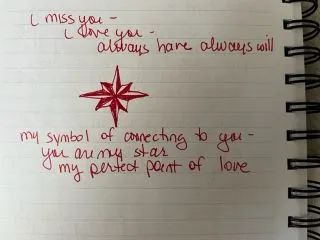 i miss you -
i love you -
always have always will
my symbol of connecting to you -
you are my star
my perfect point of love